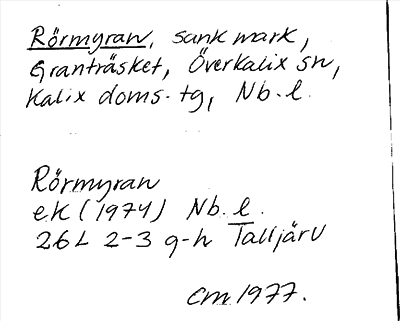 Rörmyran, sank mark,
Granträsket, Överkalix sn,
Kalix doms. tg, Nb. l.
Rörmyran
ek (1974) Nb. l.
26L 2-3 g-h Talljärv
CM 1977.